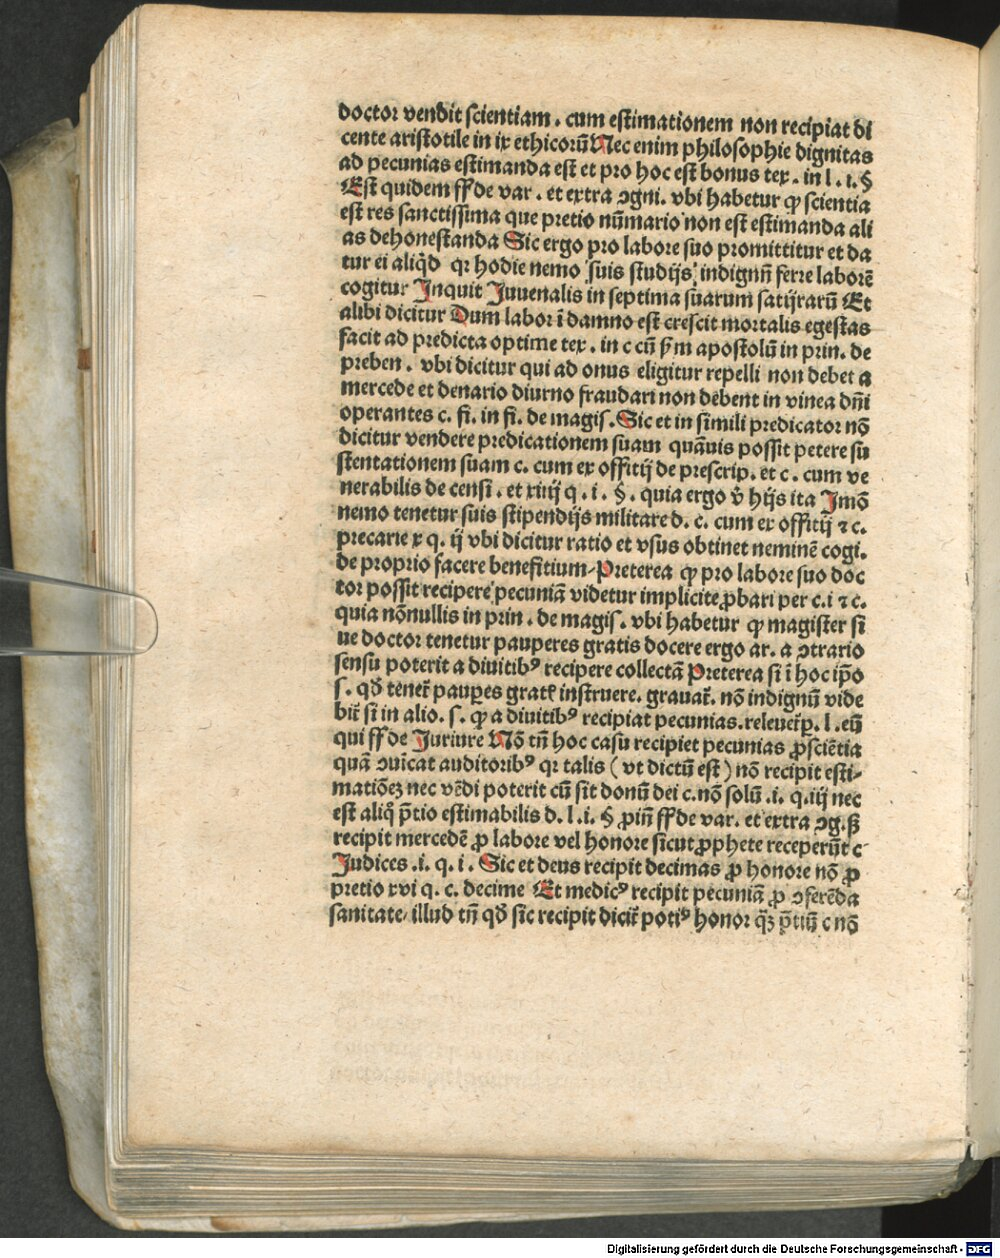 doctor vendit scientiam . cum estimationem non recipiat di
cente aristotile in ix ethicorū Nec enim philosophie dignitas
ad pecunias estimanda est et pro hoc est bonus tex . in l . i . §
Est quidem ff de var . et extra ꝯgni . vbi habetur ꝙ scientia
est res sanctissima que pretio nūmario non est estimanda ali
as dehonestanda Sic ergo pro labore suo promittitur et da
tur ei aliqͥd qꝛ hodie nemo suis studijs indignū ferre laborē
cogitur Inquit Juuenalis in septima suarum satijrarū Et
alibi dicitur Dum labor ī damno est crescit mortalis egestas
facit ad predicta optime tex . in c cū ẜm apostolū in prin . de
preben . vbi dicitur qui ad onus eligitur repelli non debet a
mercede et denario diurno fraudari non debent in vinea dn̄i
operantes c . fi . in fi . de magiſ . Sic et in simili predicator nō
dicitur vendere predicationem suam quāuis possit petere su
stentationem suam c . cum ex offitij de prescrip . et c . cum ve
nerabilis de censi . et xiiij q . i . § . quia ergo v̄ hijs ita Imō
nemo tenetur suis stipendijs militare d . c . cum ex offitij ⁊ c .
precarie x q . ij vbi dicitur ratio et vsus obtinet neminē cogi .
de proprio facere benefitium Preterea ꝙ pro labore suo doc
tor possit recipere pecuniā videtur implicite ꝓbari per c . i ⁊ c .
quia nōnullis in prin . de magiſ . vbi habetur ꝙ magister si
ue doctor tenetur pauperes gratis docere ergo ar . a ꝯtrario
sensu poterit a diuitibꝰ recipere collectā Preterea si ī hoc ip̄o
ſ . qd̄ tenet̄ paupes grat͛ instruere . grauat̄ . nō indignū vide
bit̄ si in alio . ſ . ꝙ a diuitibꝰ recipiat pecunias . releuet̄ p . l . eū
qui ff de Juriure Nō tn̄ hoc casu recipiet pecunias ꝓ sciētia
quā ꝯuicat auditoribꝰ qꝛ talis ( vt dictū est ) nō recipit esti-
matiōeꝫ nec vēdi poterit cū sit donū dei c . nō solū . i . q . iij nec
est aliqͦ p̄tio estimabilis d . l . i . § ꝓin̄ ff de var . et extra ꝯg . ß
recipit mercedē ꝓ labore vel honore sicut ꝓphete receperūt c
Judices . i . q . i . Sic et deus recipit decimas ꝓ honore nō ꝓ
pretio xvi q . c . decime Et medicꝰ recipit pecuniā ꝓ ꝯferēda
sanitate illud tn̄ qd̄ sic recipit dicit̄ potiꝰ honor qͣꝫ p̄tiū c nō
Digitalisierung gefördert durch die Deutsche Forschungsgemeinschaft - DFG